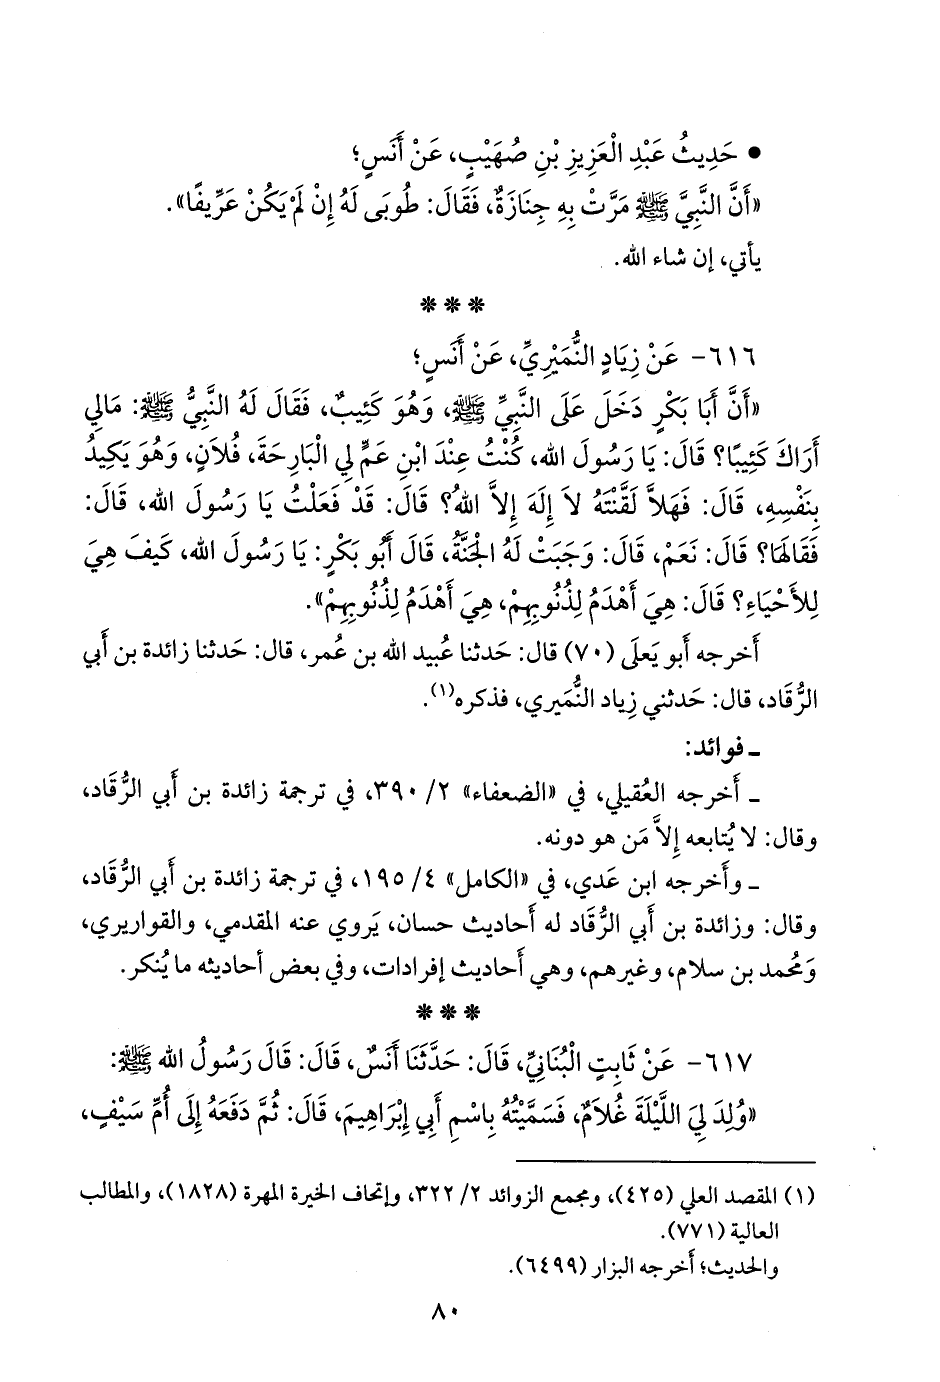 • حَدِيثُ عَبْدِ الْعَزِيزِ بْنِ صُهَيْبٍ، عَنْ أَنَسٍ؛
«أَنَّ النَّبِيَّ ﷺ مَرَّتْ بِهِ جِنَازَةٌ، فَقَالَ: طُوبَى لَهُ إِنْ لَمْ يَكُنْ عَرِّيفًا».
يأتي، إن شاء الله.
* * *
٦١٦- عَنْ زِيَادٍ النُّمَيْرِيِّ، عَنْ أَنَسٍ؛
«أَنَّ أَبَا بَكْرٍ دَخَلَ عَلَى النَّبِيِّ ﷺ، وَهُوَ كَئِيبٌ، فَقَالَ لَهُ النَّبِيُّ ﷺ: مَالِي
أَرَاكَ كَئِيبًا؟ قَالَ: يَا رَسُولَ الله، كُنْتُ عِنْدَ ابْنِ عَمٍّ لِي الْبَارِحَةَ، فُلاَنٍ، وَهُوَ يَكِيدُ
بِنَفْسِهِ، قَالَ: فَهَلاَّ لَقَّنْتَهُ لاَ إِلَهَ إِلاَّ اللهُ؟ قَالَ: قَدْ فَعَلْتُ يَا رَسُولَ الله، قَالَ:
فَقَالَهَا؟ قَالَ: نَعَمْ، قَالَ: وَجَبَتْ لَهُ الْجَنَّةُ، قَالَ أَبُو بَكْرٍ: يَا رَسُولَ الله، كَيْفَ هِيَ
لِلأَحْيَاءِ؟ قَالَ: هِيَ أَهْدَمُ لِذُنُوبِهِمْ، هِيَ أَهْدَمُ لِذُنُوبِهِمْ».
أَخرجه أَبو يَعلَى (٧٠) قال: حَدثنا عُبيد الله بن عُمر، قال: حَدثنا زائدة بن أَبي
الرُّقَاد، قال: حَدثني زِياد النُّمَيري، فذكره(١).
ـ فوائد:
ـ أَخرجه العُقيلي، في «الضعفاء» ٢/ ٣٩٠، في ترجمة زائدة بن أَبي الرُّقَاد،
وقال: لا يُتابعه إِلاَّ مَن هو دونه.
ـ وأَخرجه ابن عَدي، في «الكامل» ٤/ ١٩٥، في ترجمة زائدة بن أَبي الرُّقَاد،
وقال: وزائدة بن أَبي الرُّقَاد له أَحاديث حسان، يَروي عنه المقدمي، والقواريري،
وَمُحمد بن سلام، وغيرهم، وهي أَحاديث إفرادات، وفي بعض أحاديثه ما يُنكر.
* * *
٦١٧- عَنْ ثَابِتٍ الْبُنَانِيِّ، قَالَ: حَدَّثَنَا أَنَسٌ، قَالَ: قَالَ رَسُولُ الله ﷺ:
«وُلِدَ لِيَ اللَّيْلَةَ غُلاَمٌ، فَسَمَّيْتُهُ بِاسْمِ أَبِي إِبْرَاهِيمَ، قَالَ: ثُمَّ دَفَعَهُ إِلَى أُمِّ سَيْفٍ،
(١) المقصد العلي (٤٢٥)، ومجمع الزوائد ٢/ ٣٢٢، وإتحاف الخيرة المهرة (١٨٢٨)، والمطالب
العالية (٧٧١).
والحديث؛ أَخرجه البزار (٦٤٩٩).
٨٠